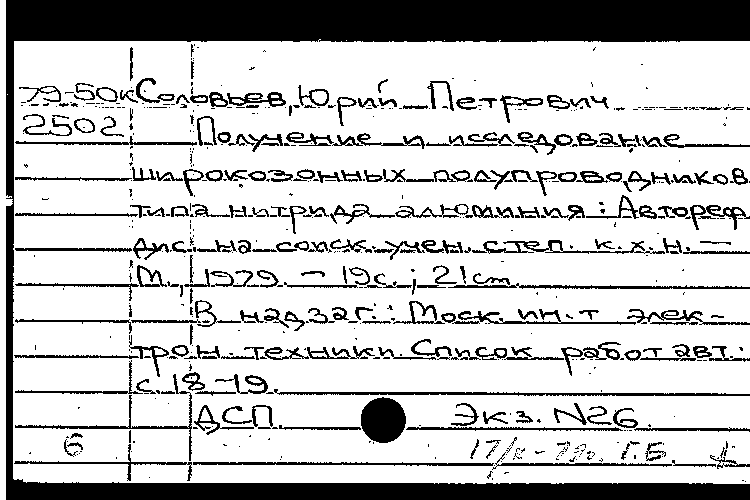 79-50к Соловьев, Юрий Петрович
2502 Получение и исследование
широкозонных полупроводников
типа нитрида алюминия : Автореф
дис. на соиск. учен. степ. к.х.н. —
М., 1979. — 19с. ; 21см.
В надзаг.: Моск. ин-т элек-
трон. техники. Список работ авт.:
с. 18-19.
ДСП. Экз. №26.
6 Г.Б.